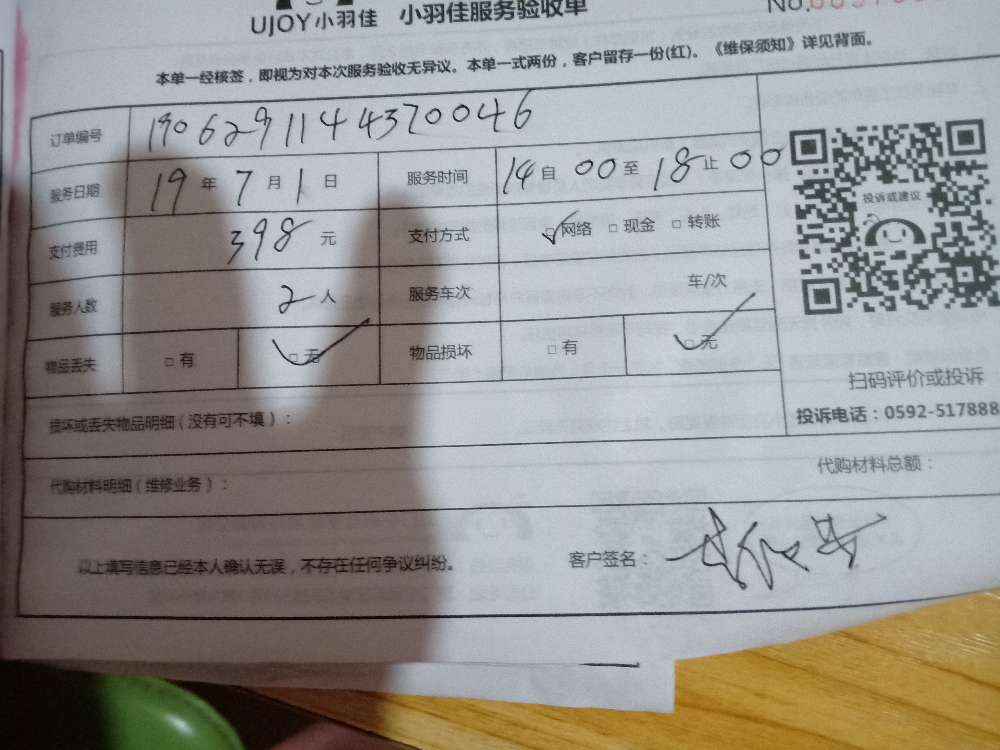 UJOY小羽佳 小羽佳服务验收单
No.
本单一经核签，即视为对本次服务验收无异议。本单一式两份，客户留存一份(红)。《维保须知》详见背面。
订单编号 1906291144370046
服务日期 19 年 7 月 1 日 服务时间 14 自 00 至 18 止 00
投诉或建议
支付费用 398 元 支付方式 ☑网络 □现金 □转账
服务人数 2 人 服务车次 车/次
物品丢失 □有 ☑无 物品损坏 □有 ☑无
扫码评价或投诉
投诉电话：0592-517888
损坏或丢失物品明细（没有可不填）：
代购材料明细（维修业务）： 代购材料总额：
以上填写信息已经本人确认无误，不存在任何争议纠纷。 客户签名：